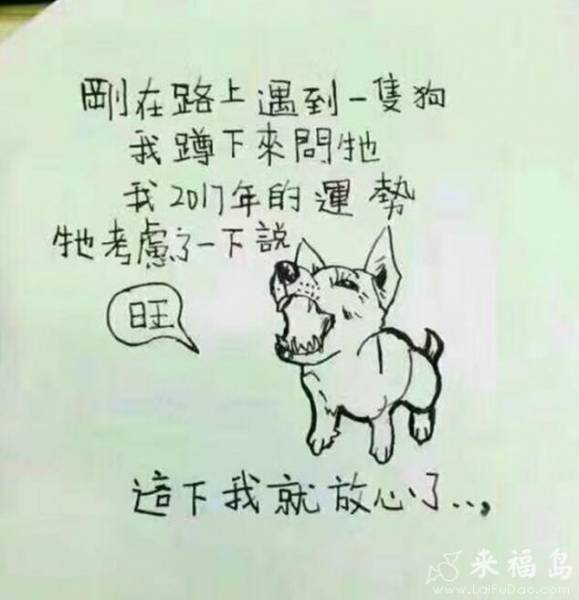 剛在路上遇到一隻狗
我蹲下來問牠
我2017年的運勢
牠考慮了一下說
旺
這下我就放心了...,
来福岛
www.LaiFuDao.com